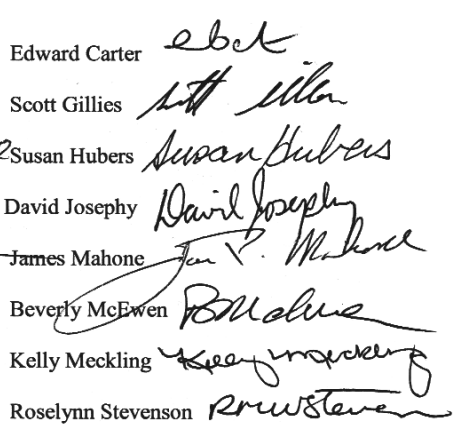 Edward Carter
Scott Gillies
Susan Hubers Susan Hubers
David Josephy David Josephy
James Mahone P. Mahone
Beverly McEwen
Kelly Meckling Kelly Meckling
Roselynn Stevenson